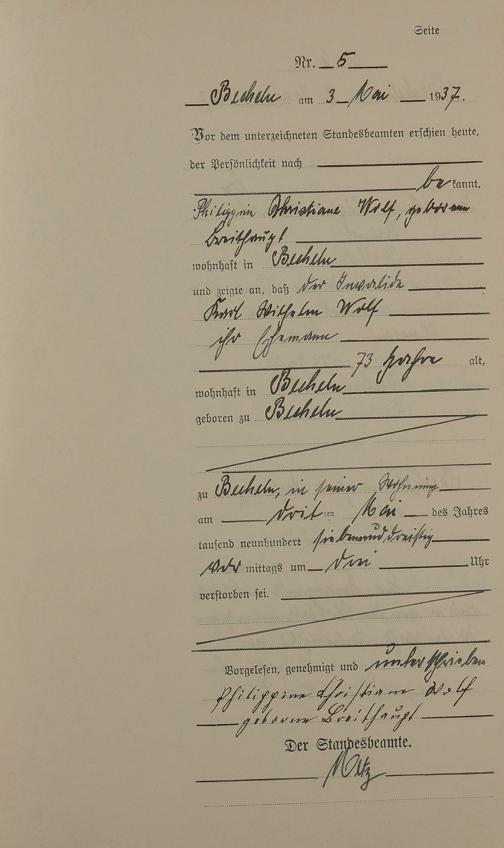 Seite
Nr. 5
Becheln am 3 Mai 1937.
Vor dem unterzeichneten Standesbeamten erschien heute,
der Persönlichkeit nach
bekannt,
Philippin Christiane Wolf, geborene
Breithaupt
wohnhaft in Becheln
und zeigte an, daß der Invalide
Karl Wilhelm Wolf
ihr Ehemann
73 Jahre alt,
wohnhaft in Becheln
geboren zu Becheln
zu Becheln, in seiner Wohnung
am dritten Mai des Jahres
tausend neunhundert siebenunddreißig
vor mittags um drei Uhr
verstorben sei.
Vorgelesen, genehmigt und unterschrieben
Philippine Christiane Wolf
geborne Breithaupt
Der Standesbeamte.
Metz